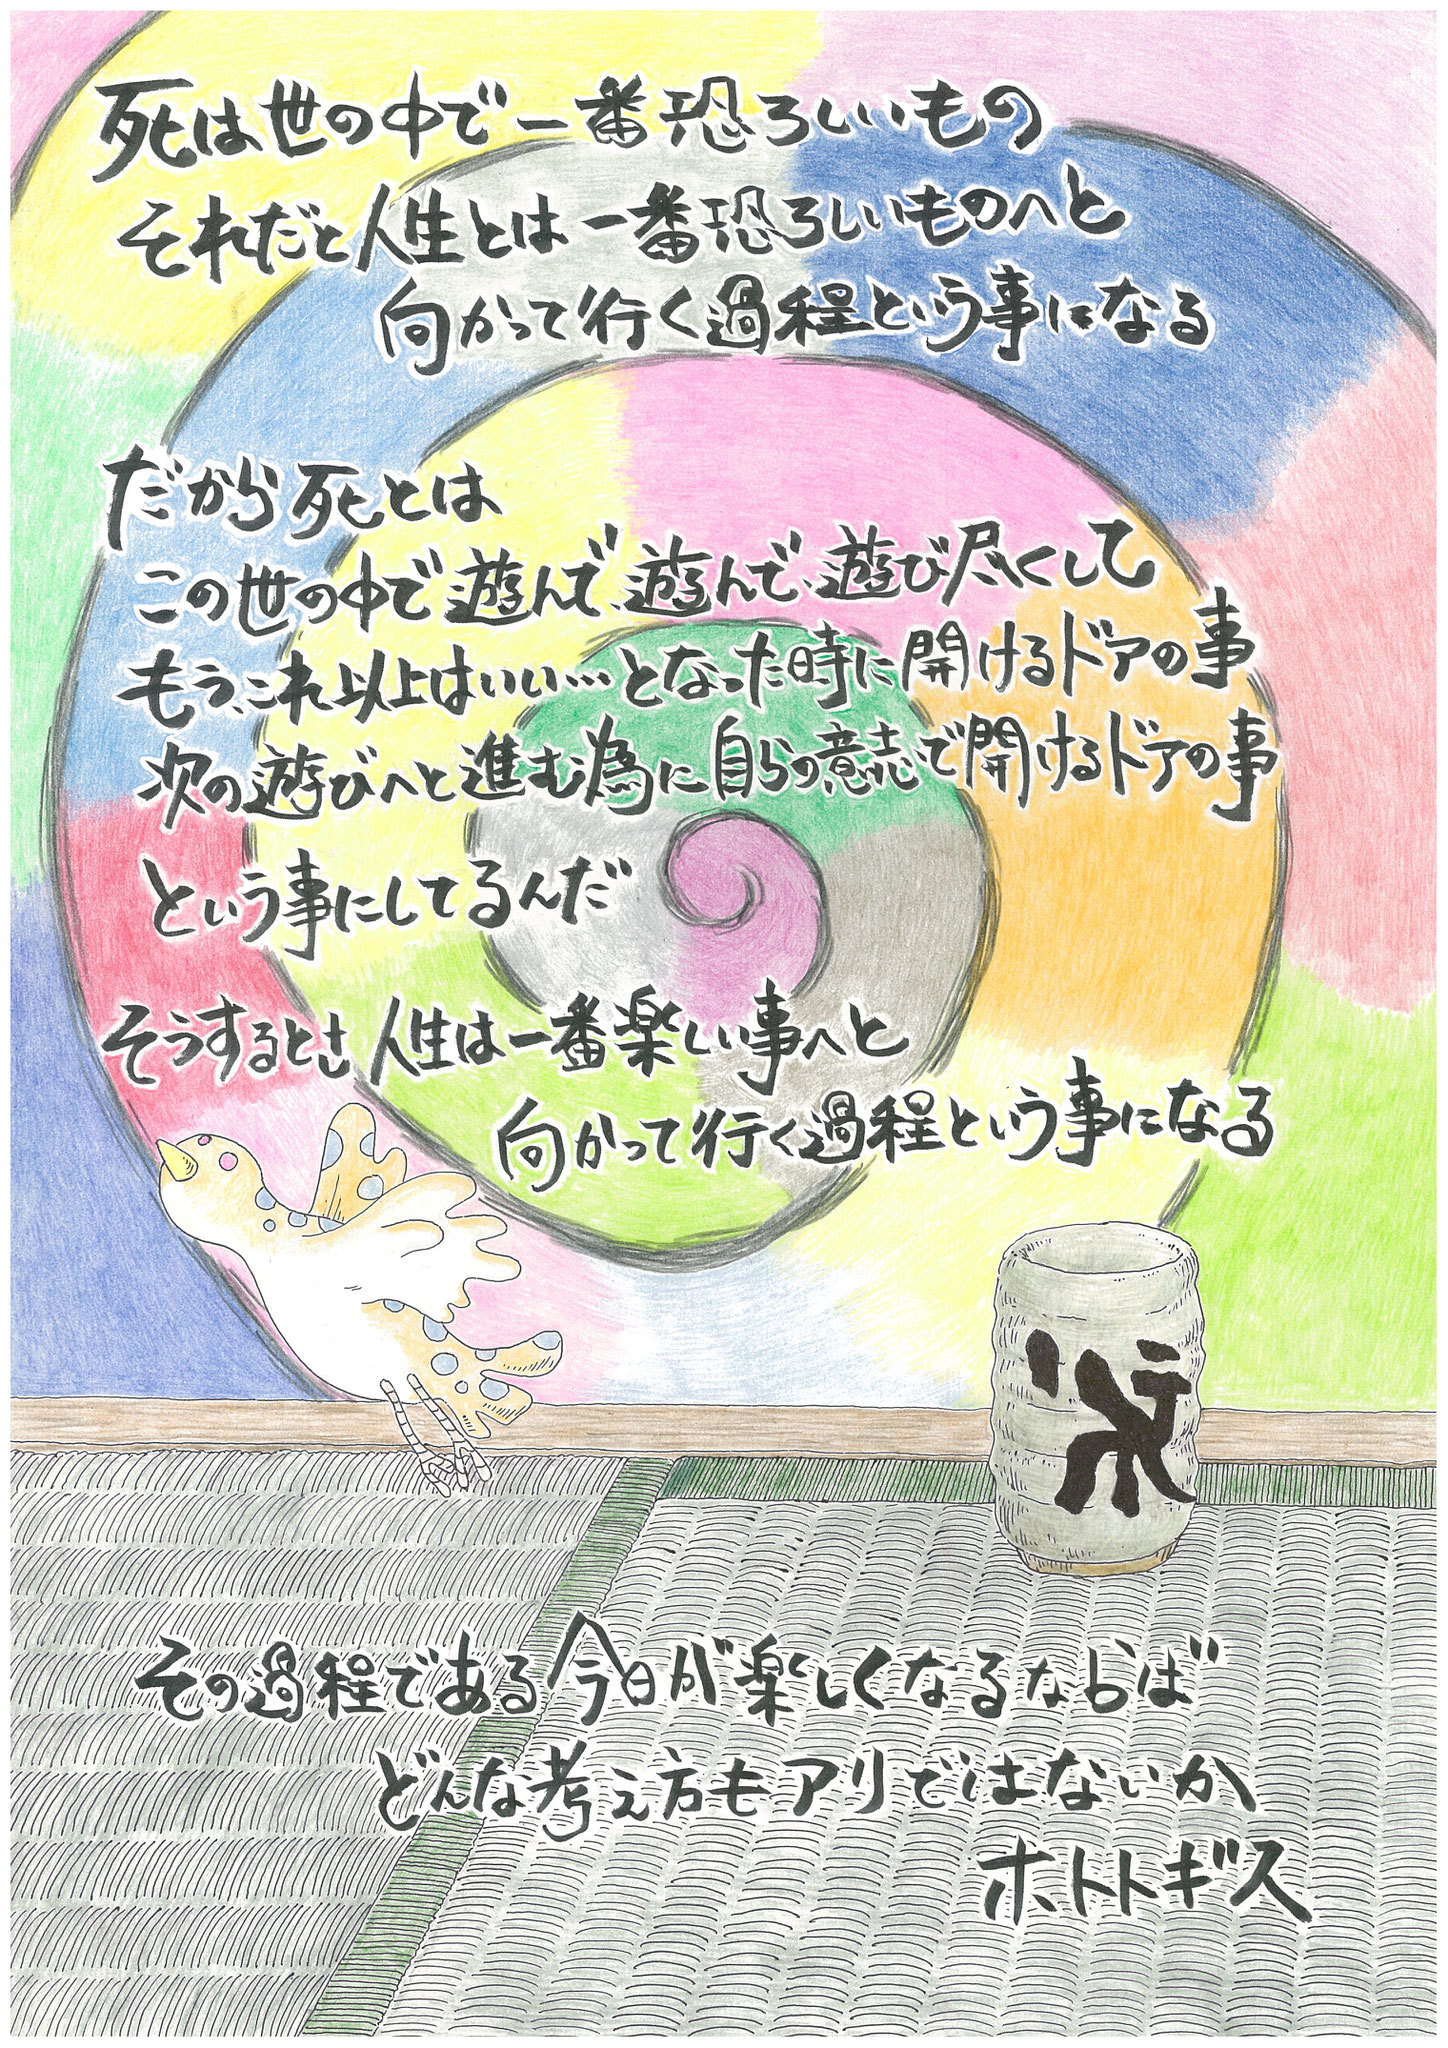 死は世の中で一番恐ろしいもの
それだと人生とは一番恐ろしいものへと
向かって行く過程という事になる
だから死とは
この世の中で遊んで、遊んで、遊び尽くして
もう、これ以上はいい…となった時に開けるドアの事
次の遊びへと進む為に自らの意志で開けるドアの事
という事にしてるんだ
そうするとさ人生は一番楽しい事へと
向かって行く過程という事になる
その過程である今日が楽しくなるならば
どんな考え方もアリではないか
ホトトギス